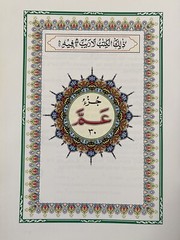 ذَٰلِكَ الْكِتَٰبُ لَا رَيْبَ ۛ فِيهِ ۛ
جُزْءُ
عَمَّ
٣٠